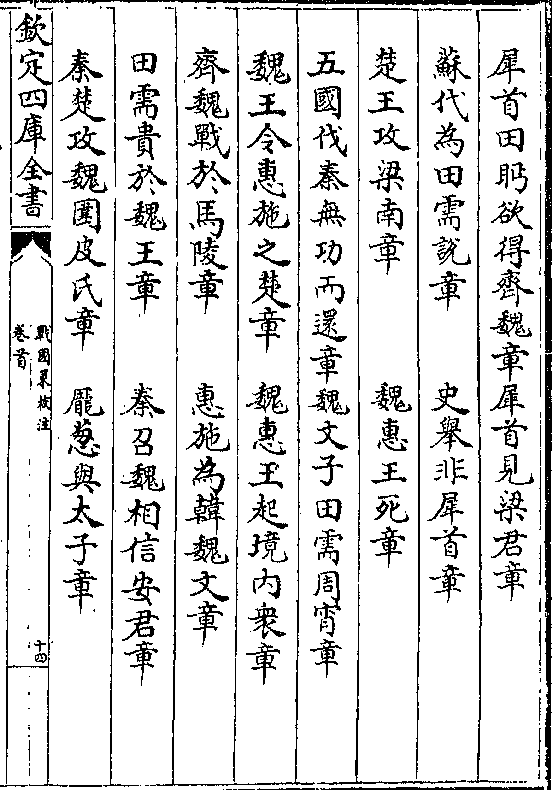 犀首田盻欲得齊魏章犀首見梁君章
蘇代為田需說章 史舉非犀首章
楚王攻梁南章 魏惠王死章
五國伐秦無功而還章魏文子田需周宵章
魏王令惠施之楚章 魏惠王起境內衆章
齊魏戰於馬陵章 惠施為韓魏文章
田需貴於魏王章 秦召魏相信安君章
秦楚攻魏圍皮氏章 龐葱與太子章
欽定四庫全書
戰國策校注
卷首
十四